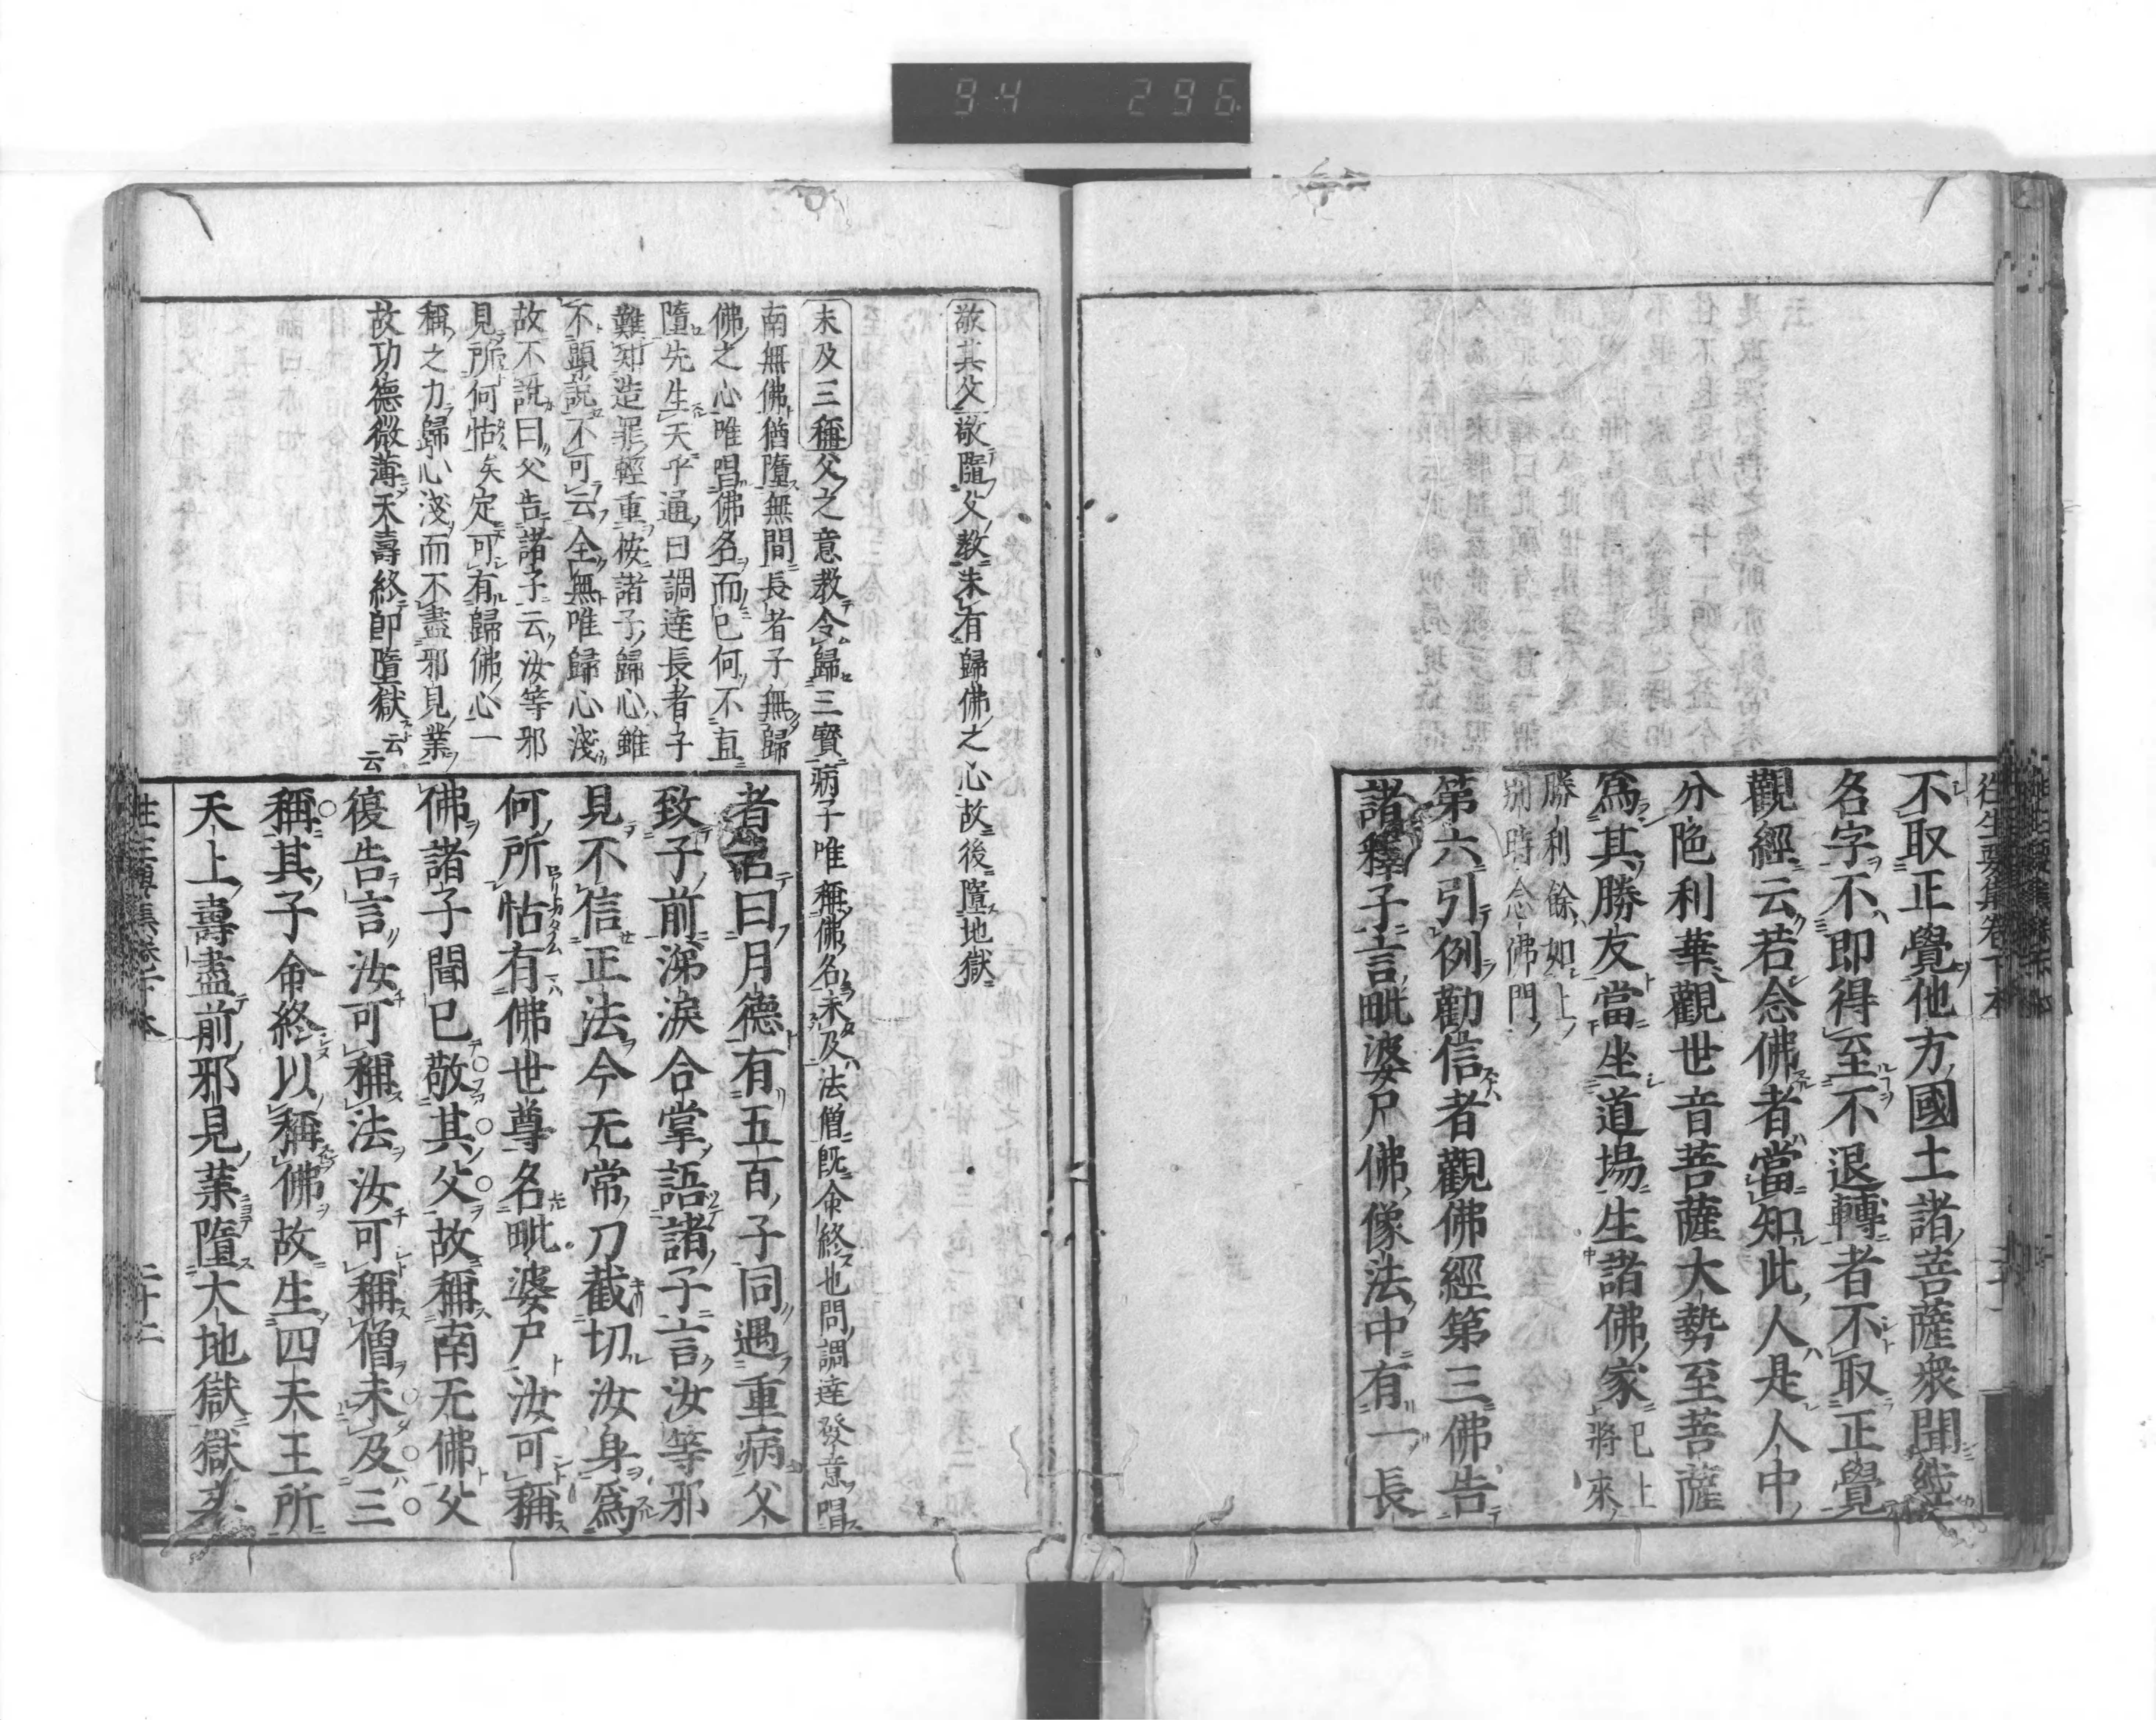 94 296
往生要集卷下本
不取正覺他方國土諸菩薩衆聞
名字不即得至不退轉者不取正覺
觀經云若念佛者當知此人是人中
分陁利華觀世音菩薩大勢至菩薩
爲其勝友當坐道場生諸佛家已上將來
勝利餘如上
別時念佛門
第六引例勸信者觀佛經第三佛告
諸釋子言毗婆尸佛像法中有一長
敬其父敬隨父教未有歸佛之心故後墮地獄
未及三稱父之意教令歸三寶病子唯稱佛名未及法僧既命終也問調達發意唱
南無佛猶墮無間長者子無歸
佛之心唯唱佛名而已何不直
墮先生天乎通曰調達長者子
難知造罪輕重桉諸子歸心雖
不顯說不可云全無唯歸心淺
故不說曰父告諸子云汝等邪
見所何怙矣定可有歸佛心一
稱之力歸心淺而不盡邪見業
故功德微薄天壽終即墮獄云云
者名曰月德有五百子同遇重病父
致子前涕淚合掌語諸子言汝等邪
見不信正法今无常刀截切汝身爲
何所怙有佛世尊名毗婆尸汝可稱
佛諸子聞已敬其父故稱南无佛父
復告言汝可稱法汝可稱僧未及三
稱其子命終以稱佛故生四天王所
天上壽盡前邪見業墮大地獄獄卒
二十二